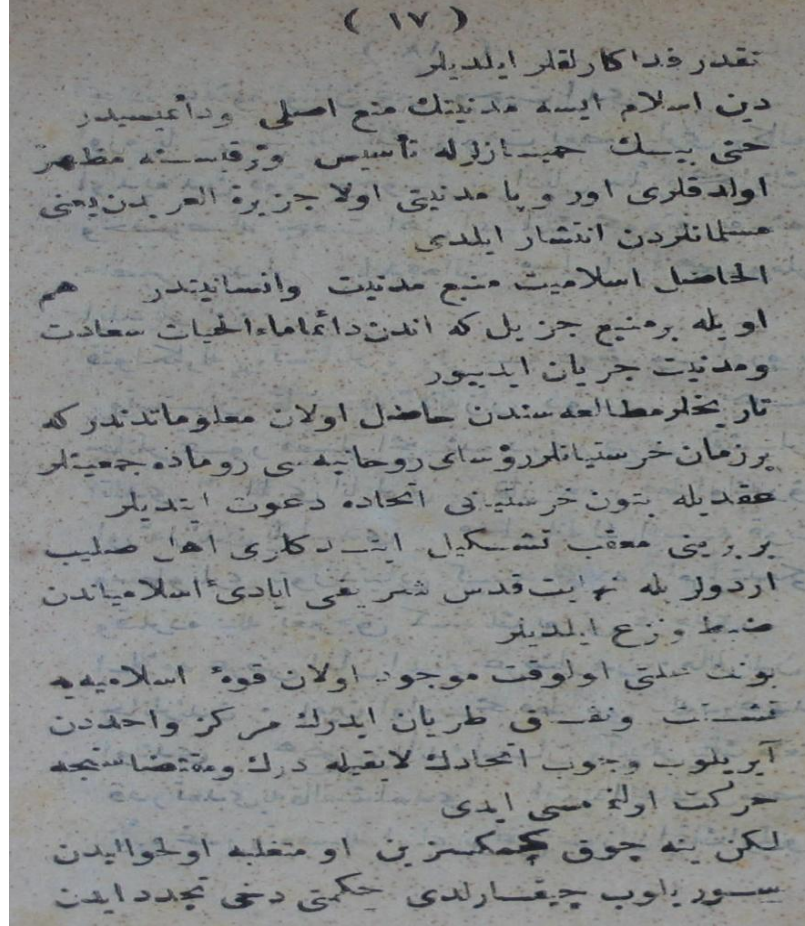 ( ١٧ )
نقدر فداكارلقلر ايلديلر
دين اسلام ايسه مدنيتك منبع اصلى ودائميسيدر
حتى بيسك حميـسازلرله تأسيس وترقيسنه مظهر
اولدقلرى اوروپا مدنيتى اولا جزيرة العربدن يعنى
مسلمانلردن انتشار ايلدى
الحاصل اسلاميت منبع مدنيت وانسانيتدر هم
اويله بر منبع جزيل كه اندن دائما ماءالحيات سعادت
ومدنيت جريان ايدييور
تاريخلر مطالعه سندن حاصل اولان معلوماتدندر كه
بر زمان خرستيانلر رؤساى روحانيه سى روماده جمعيتلر
عقديله بتون خرستيانى اتحاده دعوت ايتديلر
بربرينى معقب تشكيل ايتدكلرى اهل صليب
اردولريله نهايت قدس شريفى ايادئ اسلامياندن
ضبط ونزع ايلديلر
بونك علتى اولوقت موجود اولان قوۀ اسلاميه يه
تشتت ونفاق طريان ايدرك مركز واحددن
آيريلوب وجوب اتحادك لايقيله درك ومقتضاسنجه
حركت اولنمامسى ايدى
لكن ينه چوق كچمكسزين او متغلبه اولحواليدن
سوريلوب چيقارلدى حكمتى دخى تجدد ايدن